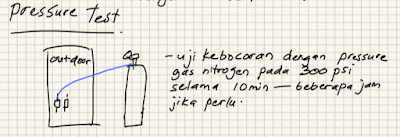 Pressure Test.
outdoor
- uji kebocoran dengan pressure
gas nitrogen pada 300 psi
selama 10 min — beberapa jam
jika perlu.